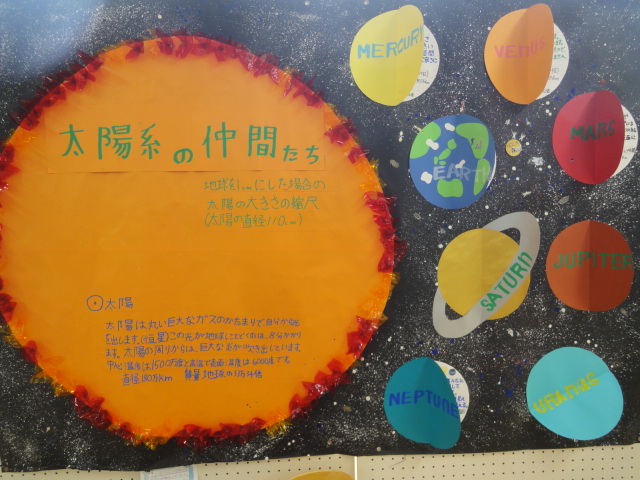 太陽系の仲間たち
地球を1cmにした場合の
太陽の大きさの縮尺
(太陽の直径110cm)
太陽
太陽は丸い巨大なガスのかたまりで、自分から光
を出します。(恒星)この光が地球にとどくには、8分かかり
ます。太陽の周りからは、巨大な炎がふき出しています。
中心温度は1500万度と高温で表面温度は6000度です
直径140万km 質量 地球の33万倍
MERCURY
VENUS
MARS
EARTH
SATURN
JUPITER
NEPTUNE
URANUS